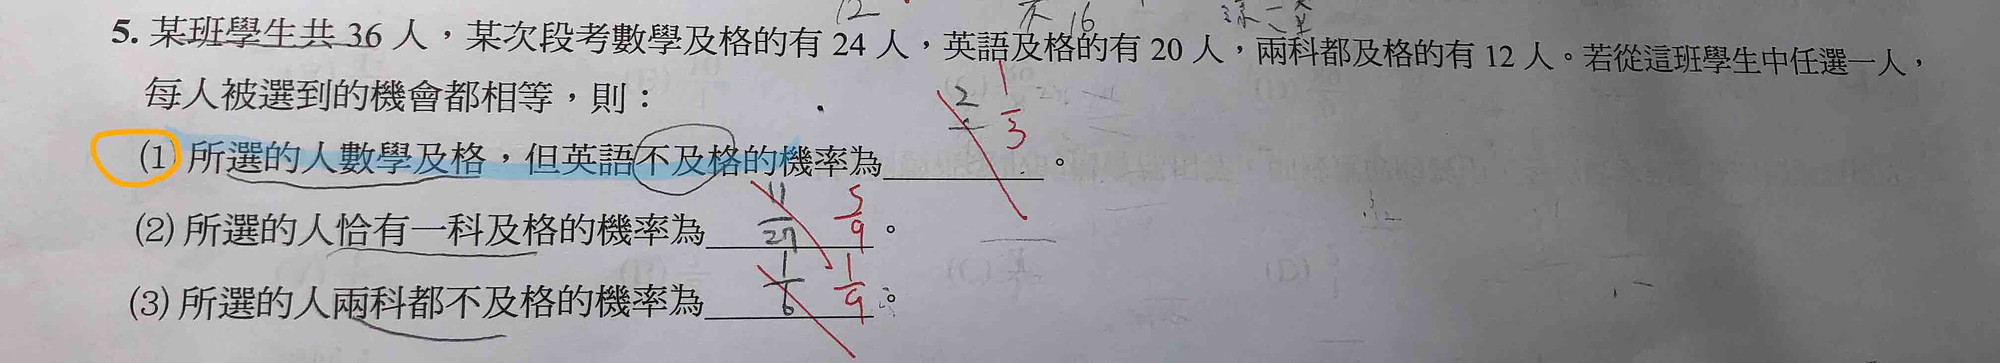 12 不 16
5. 某班學生共 36 人，某次段考數學及格的有 24 人，英語及格的有 20 人，兩科都及格的有 12 人。若從這班學生中任選一人，
每人被選到的機會都相等，則：
(1) 所選的人數學及格，但英語不及格的機率為 1/3 。
(2) 所選的人恰有一科及格的機率為 11/27 5/9 。
(3) 所選的人兩科都不及格的機率為 1/6 1/9 。